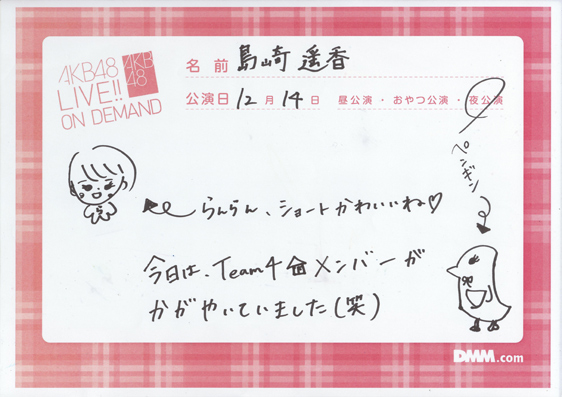 AKB48
LIVE!!
ON DEMAND
AKB
48
名前 島崎 遥香
公演日 12月14日 昼公演・おやつ公演・夜公演
ペンギン
らんらん、ショートかわいいね♡
今日は、Team4メンバーが
かがやいていました(笑)
DMM.com